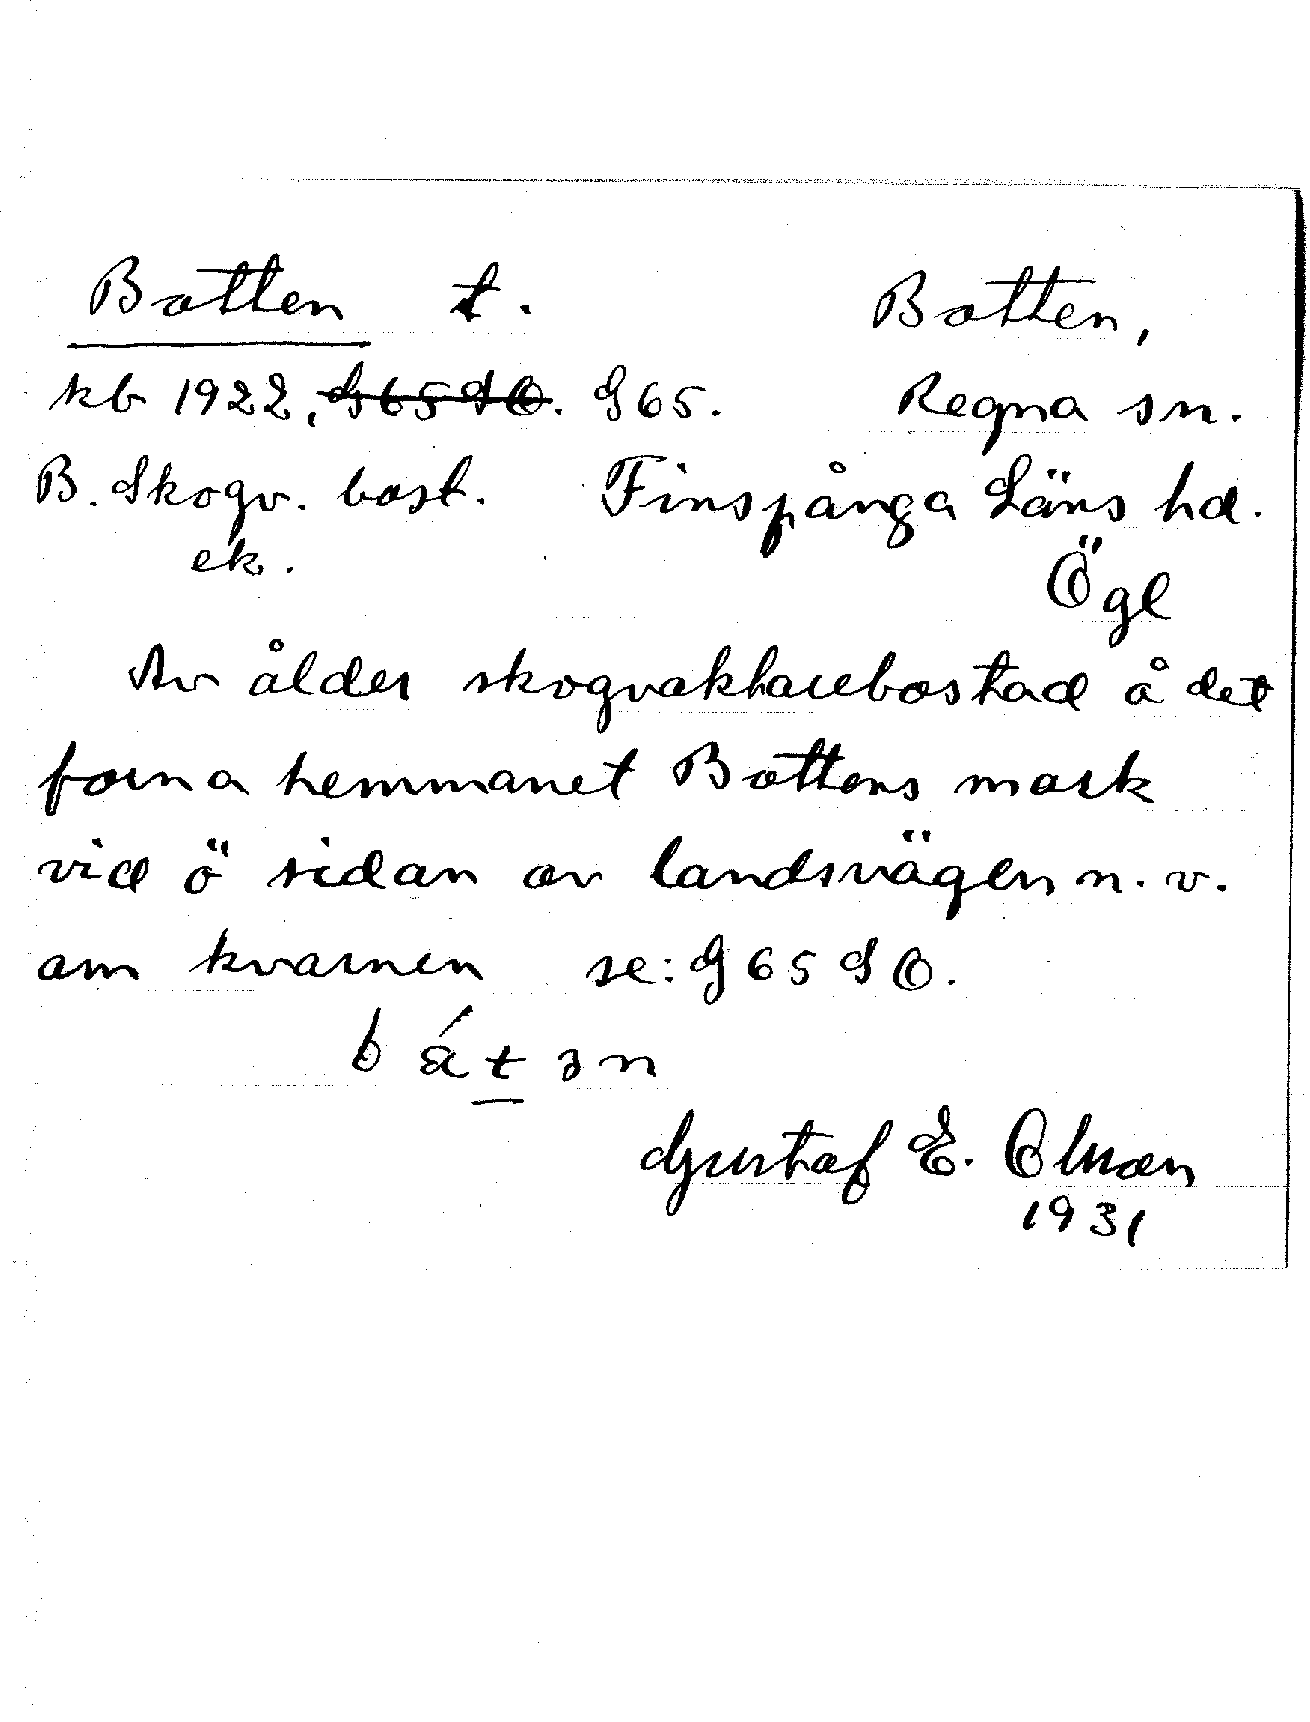 Botten t. Botten,
kb 1922, G65SO. G65. Regna sn.
B. Skogv. bost. Finspånga Läns hd.
ek. Ögl
Av ålder skogvaktarebostad å det
forna hemmanet Bottens mark
vid ö sidan av landsvägen n. v.
om kvarnen se: G65SO.
b á t ə n
Gustaf E. Olsson
1931